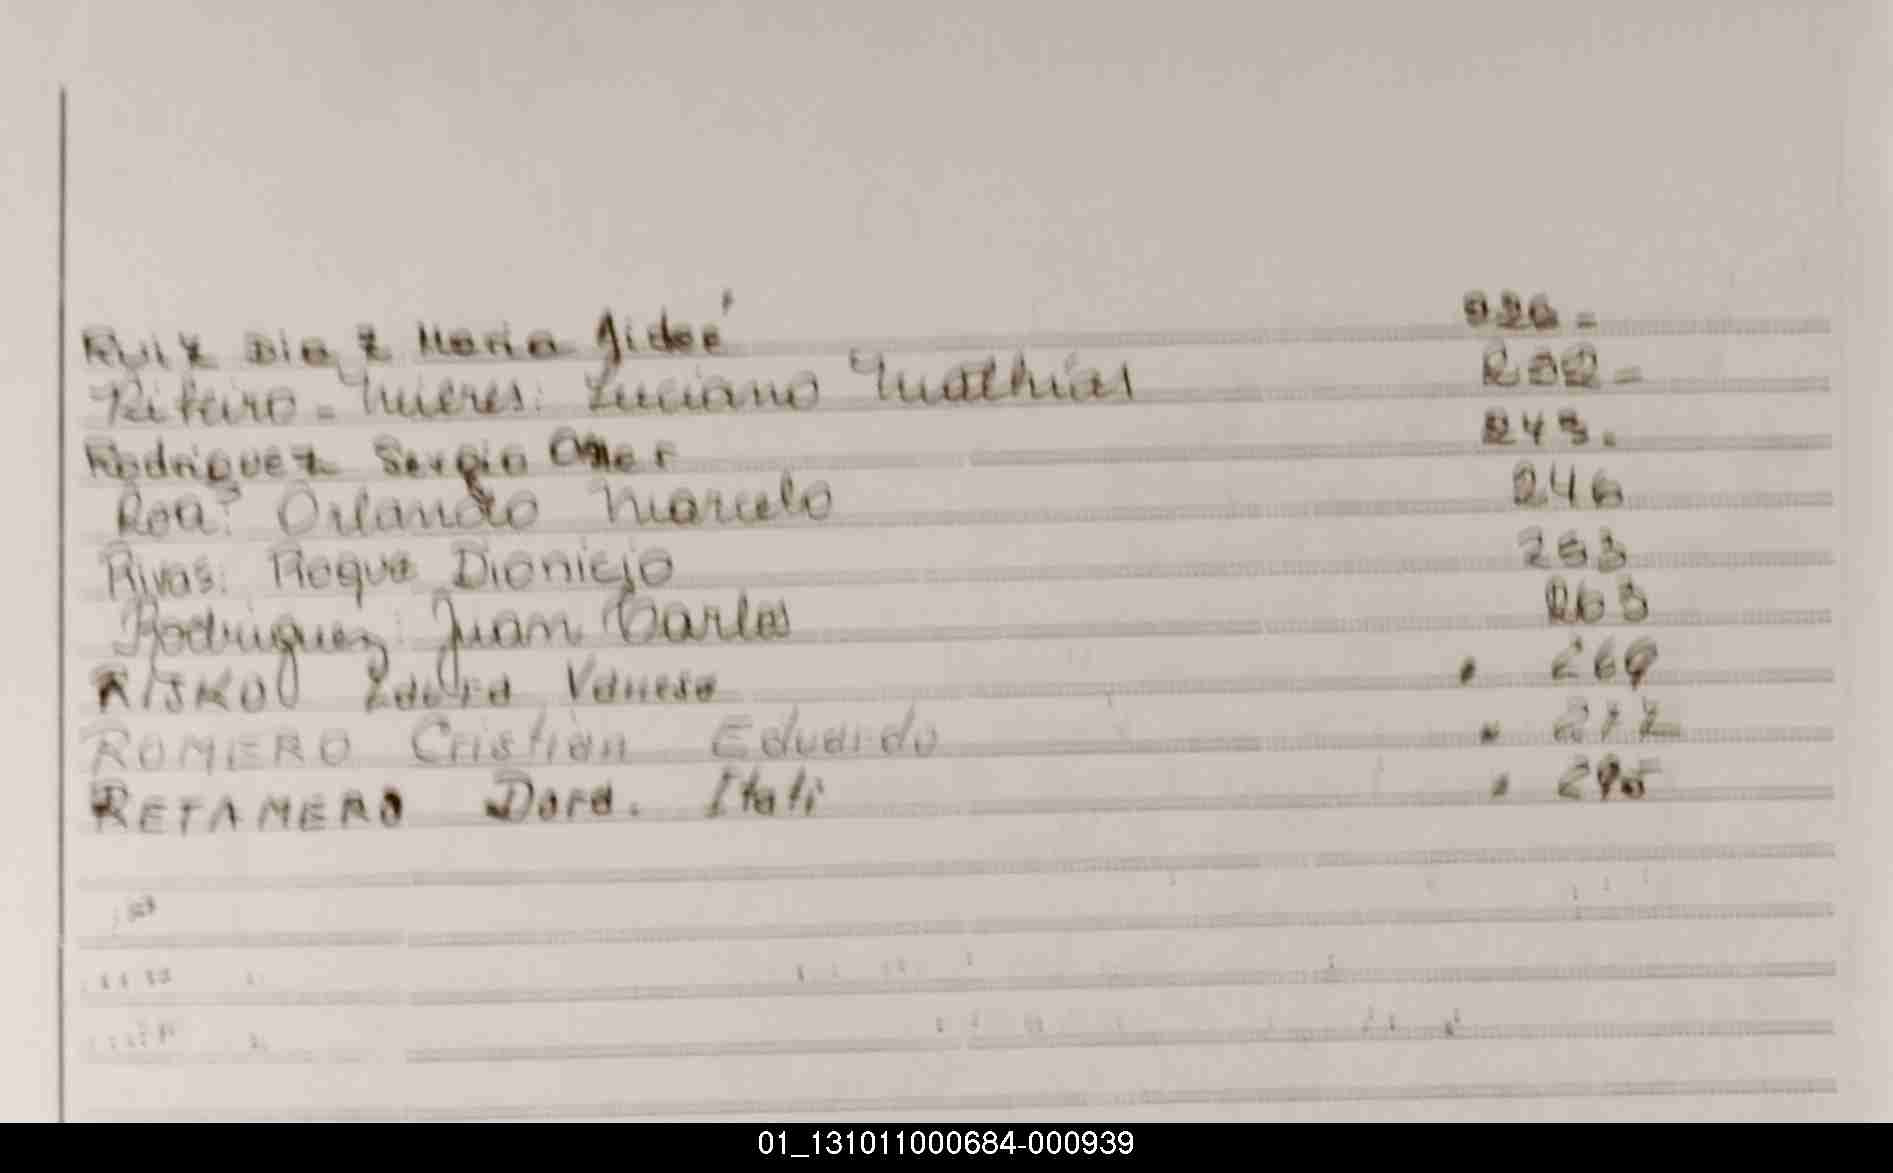 Ruiz Diaz Maria Aideé 226=
Riteiro=Mieres: Luciano Mathias 232=
Rodriguez Sergio Omer 243.
Roa: Orlando Marcelo 246
Rivas: Roque Dionicio 253
Rodriguez: Juan Carlos 263
RISKO Laura Vanesa . 269
ROMERO Cristian Eduardo . 272
RETAMERO Dora. Itati . 295
01_131011000684-000939